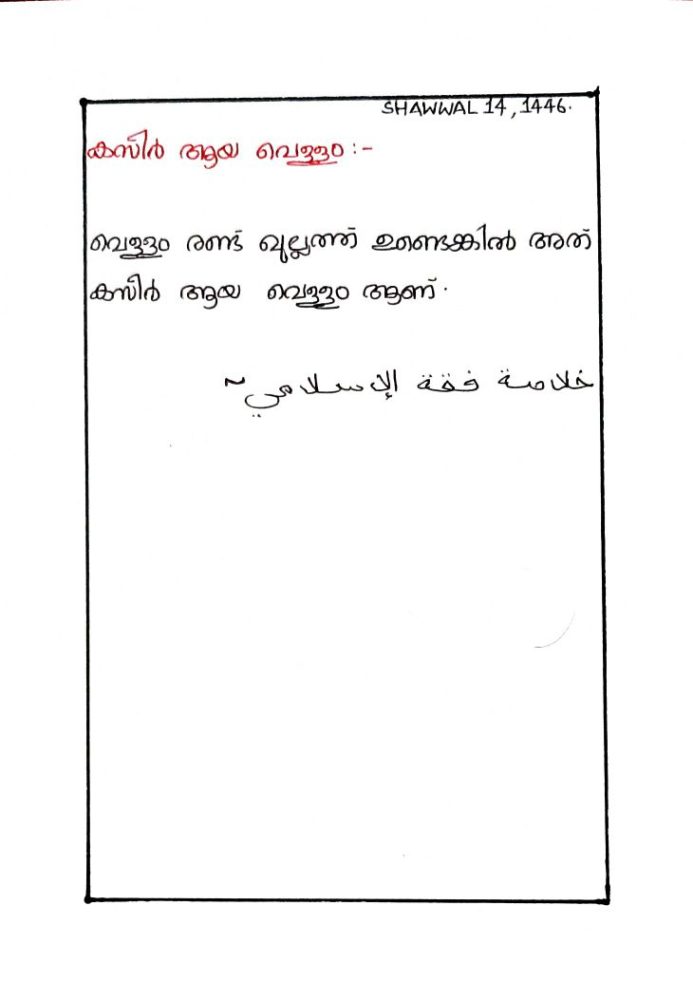 SHAWWAL 14, 1446.
കസീർ ആയ വെള്ളം :-
വെള്ളം രണ്ട് ഖുല്ലത്ത് ഉണ്ടെങ്കിൽ അത്
കസീർ ആയ വെള്ളം ആണ്.
خلاصة فقة الإسلامي~